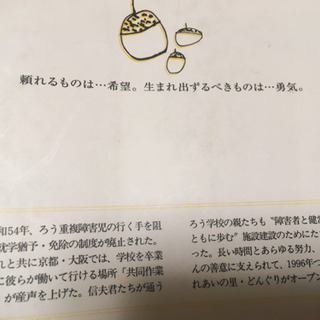 頼れるものは…希望。生まれ出ずるべきものは…勇気。
和54年、ろう重複障害児の行く手を阻
就学猶予・免除の制度が廃止された。
れと共に京都・大阪では、学校を卒業
に彼らが働いて行ける場所「共同作業
が産声を上げた。信夫君たちが通う
ろう学校の親たちも〝障害者と健
ともに歩む〟施設建設のためにた
った。長い時間とあらゆる努力、
んの善意に支えられて、1996年
れあいの里・どんぐりがオープン